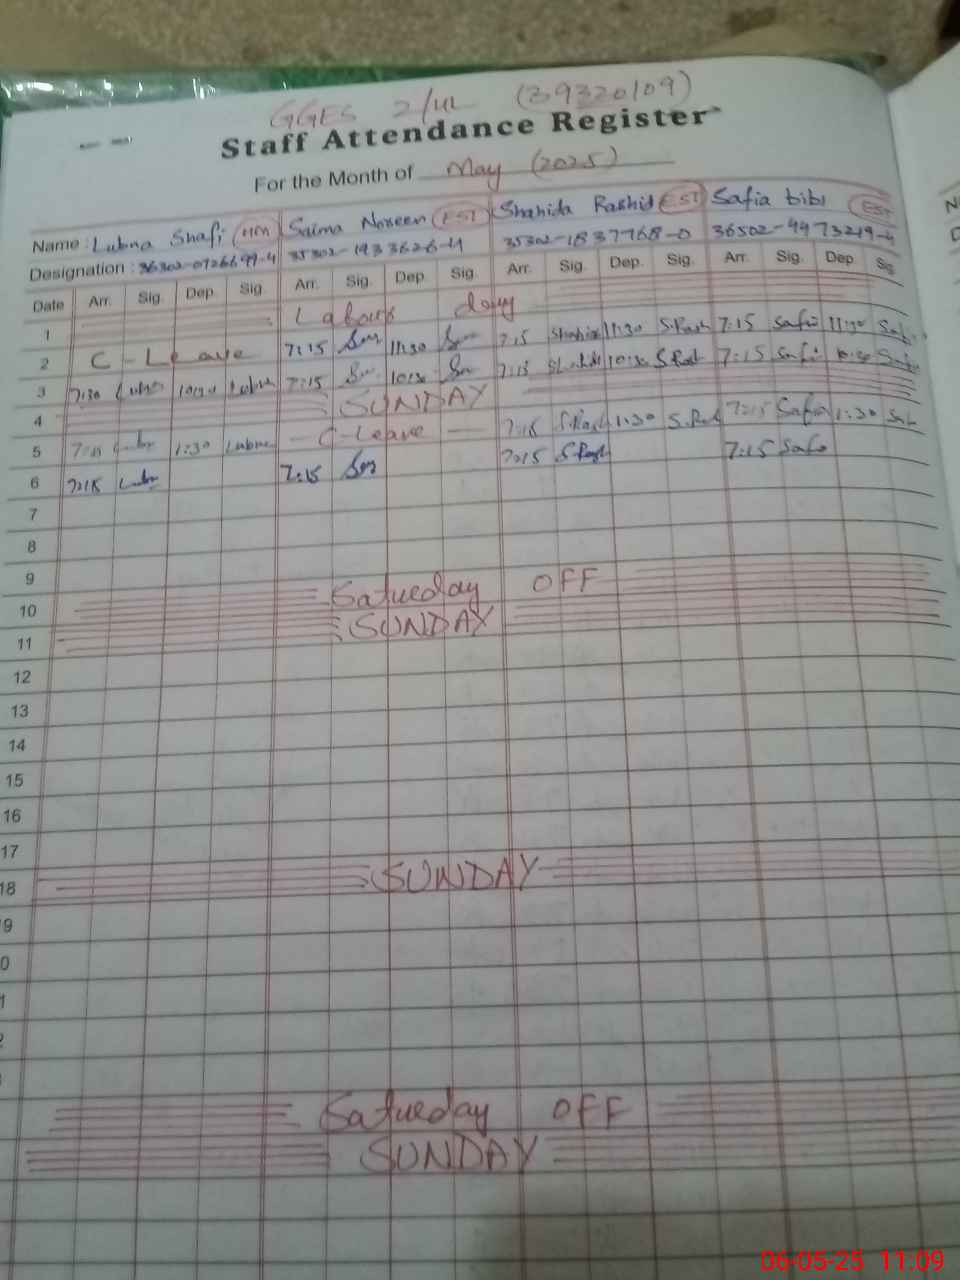 GGES 2/4L (39320109)
Staff Attendance Register
For the Month of May (2025)
Name : Lubna Shafi (HM) Saima Noreen (EST) Shahida Rashid (EST) Safia bibi (EST)
Designation : 36302-0726699-4 35302-1933626-4 35302-1837768-0 36502-9973219-4
Date Arr. Sig. Dep. Sig. Arr. Sig. Dep. Sig. Arr. Sig. Dep. Sig. Arr. Sig. Dep. Sig.
1 Labour day
2 C-Leave 7:15 11:30 7:15 Shahida 11:30 S.Rash 7:15 Safia 11:30 Safia
3 7:30 Lubna 10:30 Lubna 7:15 10:30 7:15 Shahida 10:30 S.Rash 7:15 Safia 10:30 Safia
4 SUNDAY
5 7:15 Lubna 1:30 Lubna C-Leave 7:15 S.Rash 1:30 S.Rash 7:15 Safia 1:30 Safia
6 7:15 Lubna 7:15 7:15 S.Rash 7:15 Safia
7
8
9
10 Satueday OFF
11 SUNDAY
12
13
14
15
16
17
18 SUNDAY
9
0
1
2
Satueday OFF
SUNDAY
06-05-25 11:09